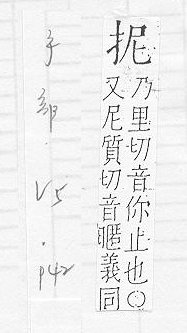 抳
乃里切音你止也○
又尼質切音暱義同
手部．V5．P42